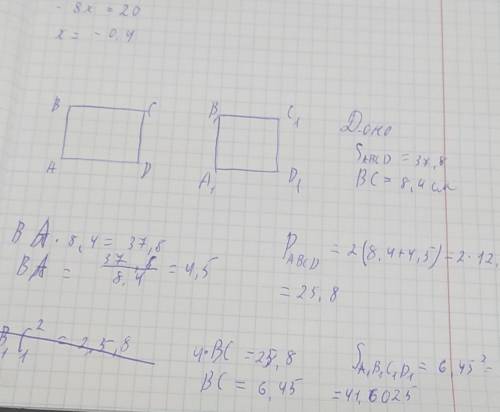 - 8x = 20
x = - 0,4
B C
A D
B₁ C₁
A₁ D₁
Дано
S_ABCD = 37,8
BC = 8,4 см
BA · 8,4 = 37,8
BA = 37,8 / 8,4 = 4,5
P_ABCD = 2(8,4+4,5) = 2·12,
= 25,8
B₁C₁² = 2,5,8
4·BC = 25,8
BC = 6,45
S_A₁B₁C₁D₁ = 6,45² =
= 41,6025